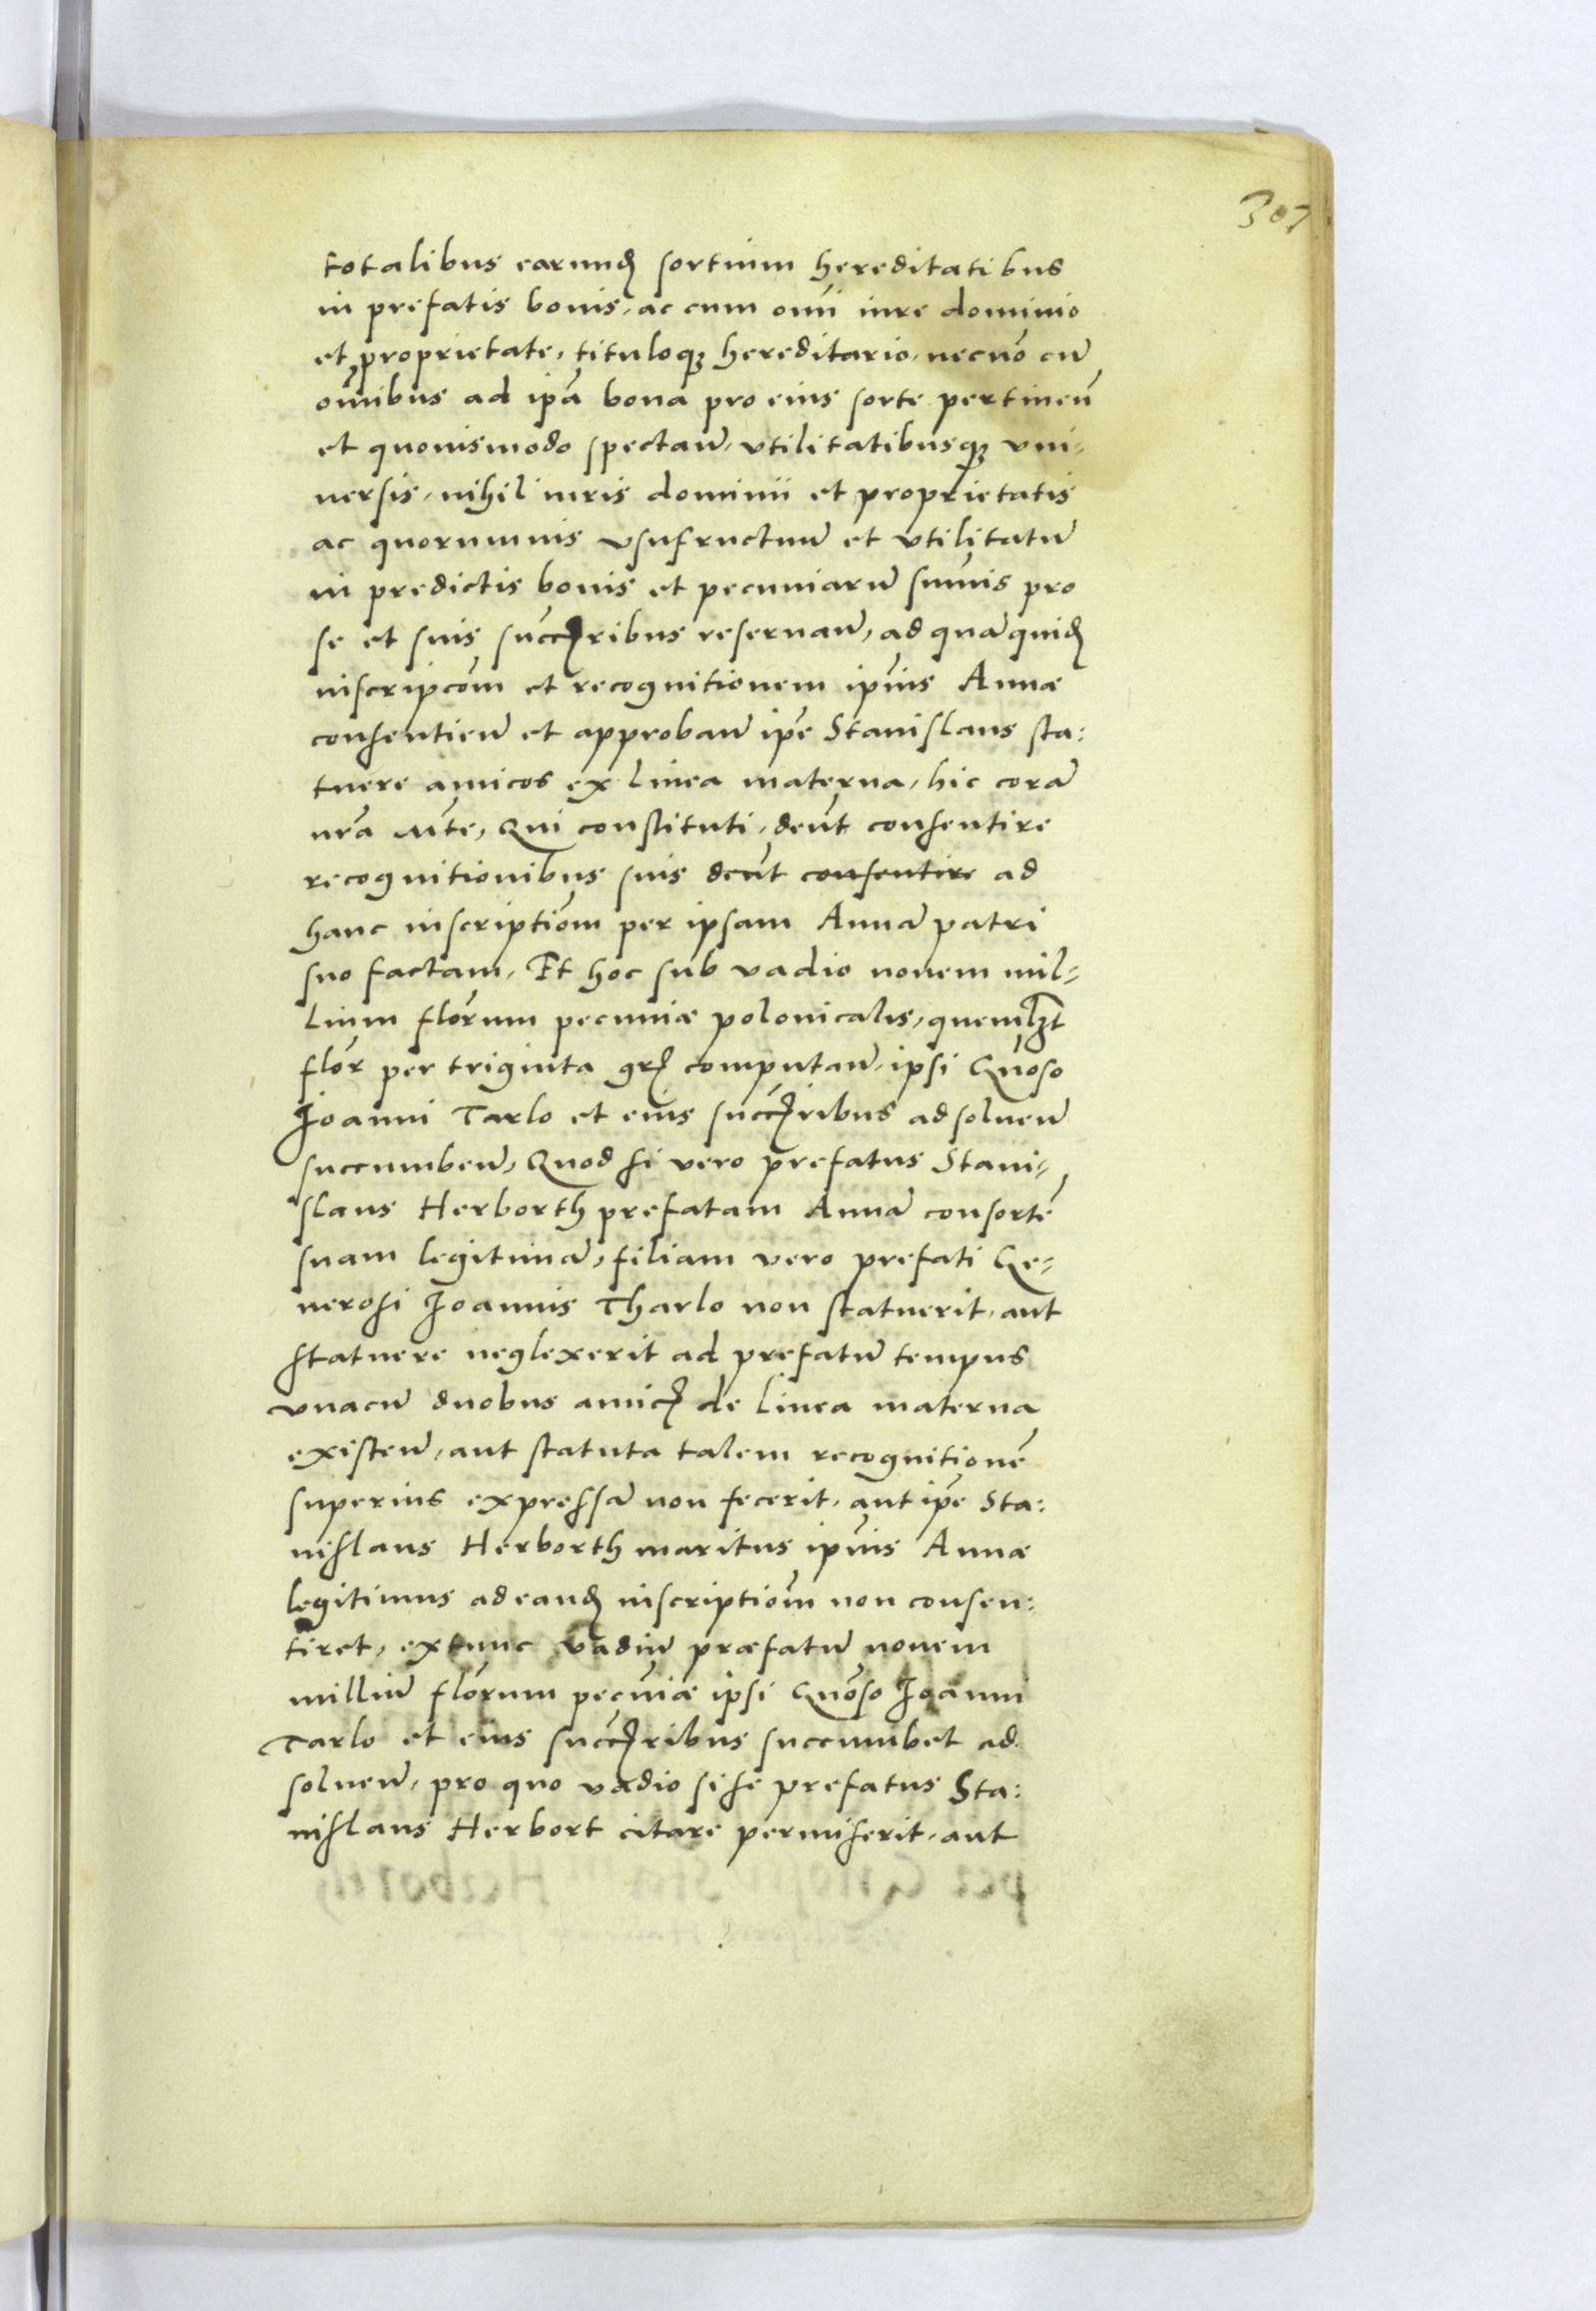 307
totalibus earundꝫ sortium hereditatibus
in prefatis bonis, ac cum omi iure dominio
et proprietate, tituloqꝫ hereditario, necnō cū
omībus ad ipā bona pro eius sorte pertineñ
et quouismodo spectañ, vtilitatibusqꝫ vni-
uersis, nihil iuris dominii et proprietatis
ac quorumuis vsufructuū et vtilitatū
in predictis bonis et pecuniarū sumis pro
se et suis succꝫribus reseruañ, ad quā quidꝫ
inscripcōm et recognitionem ipīus Annæ
consentieñ et approbañ ipē Stanislaus sta:
tuere amicos ex linea materna, hic corā
nrā Mte, Qui constituti, debūt consentire
recognitionibus suis debūt consentire ad
hanc inscriptiōm per ipsam Annā patri
suo factam, Et hoc sub vadio nouem mil-
lium florum pecuniæ polonicalis, quemlꝫt
flor per triginta grꝫ computañ, ipsi Gnōso
Joanni Tarlo et eius succꝫribus ad solueñ
succumbeñ, Quod si vero prefatus Stani-
slaus Herborth prefatam Annā consortē
suam legitimā, filiam vero prefati Ge-
nerosi Joannis Tharlo non statuerit, aut
statuere neglexerit ad prefatū tempus
vnacū duobus amicꝫ de linea materna
existeñ, aut statuta talem recognitionē
superius expressā non fecerit, aut ipē Sta:
nislaus Herborth maritus ipīus Annæ
legitimus ad eandꝫ inscriptiōm non consen:
tiret, extunc vadiū præfatū nouem
milliū florum pecūiæ ipsi Gnōso Joanni
Tarlo et eius succꝫribus succumbet ad
solueñ, pro quo vadio si se prefatus Sta:
nislaus Herbort citare permiserit, aut